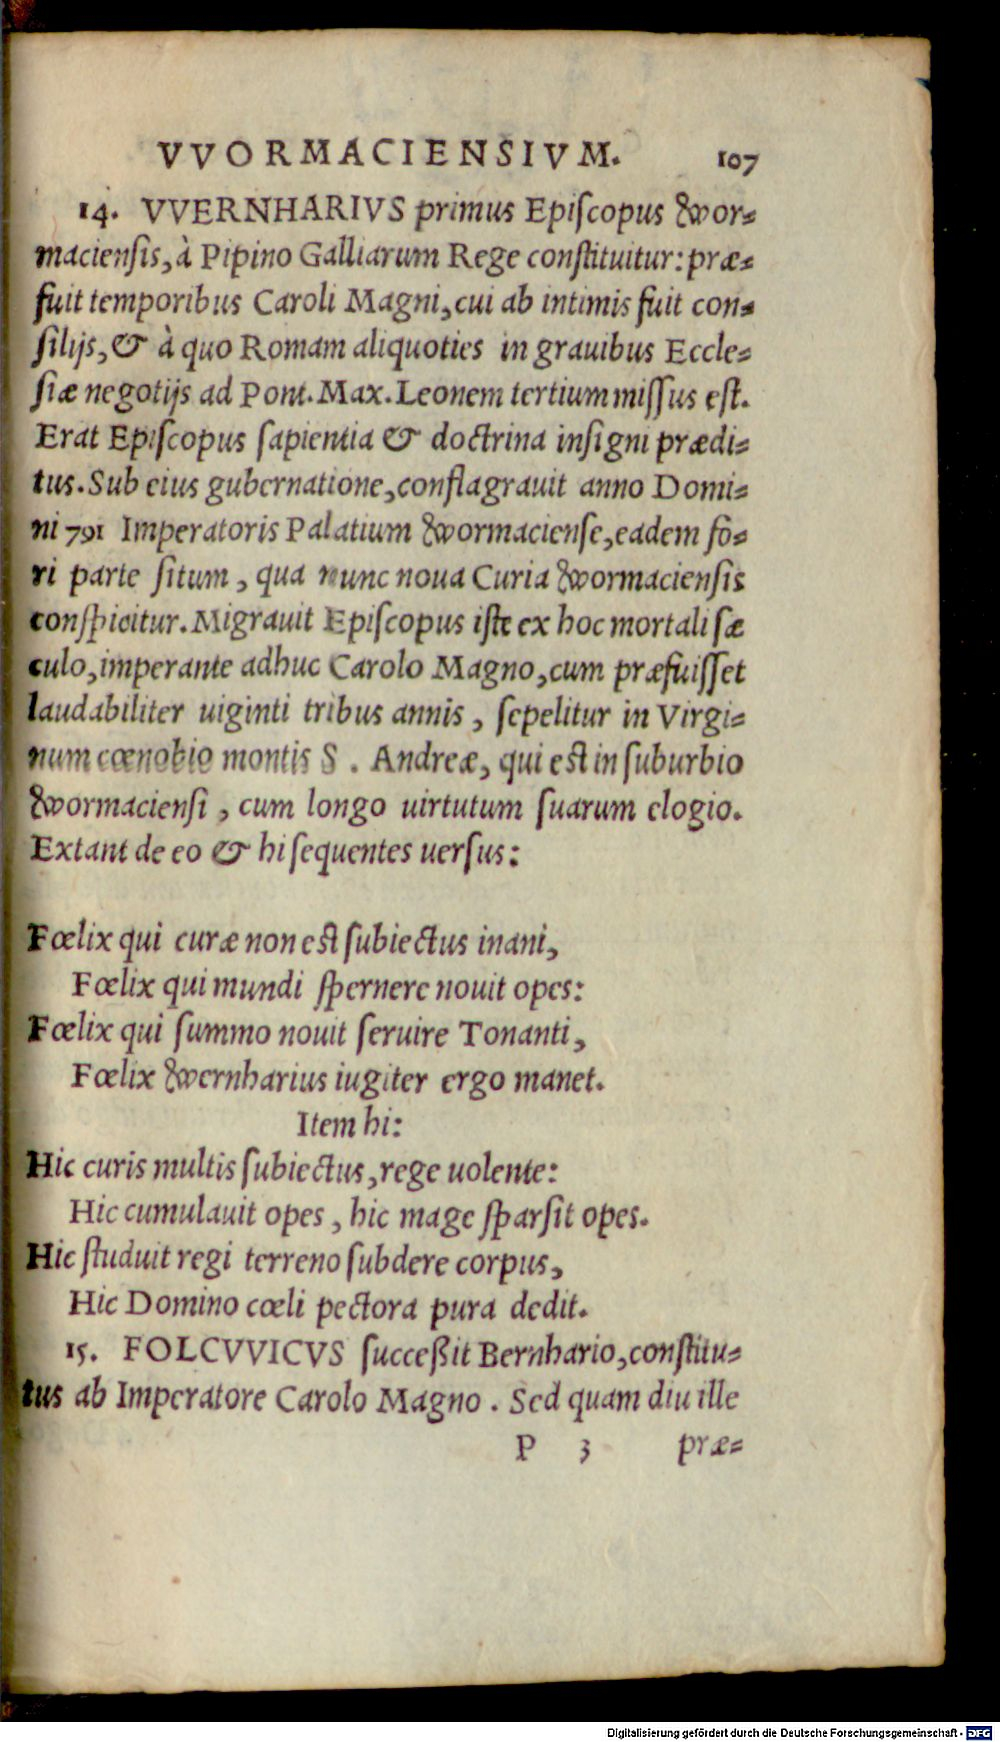 VVORMACIENSIVM. 107
14. VVERNHARIVS primus Episcopus wor=
maciensis, à Pipino Galliarum Rege constituitur: præ=
fuit temporibus Caroli Magni, cui ab intimis fuit con=
silijs, & à quo Romam aliquoties in grauibus Eccle=
siæ negotijs ad Pont. Max. Leonem tertium missus est.
Erat Episcopus sapientia & doctrina insigni prædi=
tus. Sub eius gubernatione, conflagrauit anno Domi=
ni 791 Imperatoris Palatium wormaciense, eadem fo=
ri parte situm, qua nunc noua Curia wormaciensis
conspicitur. Migrauit Episcopus iste ex hoc mortali sæ
culo, imperante adhuc Carolo Magno, cum præfuisset
laudabiliter uiginti tribus annis, sepelitur in Virgi=
num cœnobio montis S. Andreæ, qui est in suburbio
wormaciensi, cum longo uirtutum suarum elogio.
Extant de eo & hi sequentes uersus:
Fœlix qui curæ non est subiectus inani,
Fœlix qui mundi spernere nouit opes:
Fœlix qui summo nouit seruire Tonanti,
Fœlix wernharius iugiter ergo manet.
Item hi:
Hic curis multis subiectus, rege uolente:
Hic cumulauit opes, hic mage sparsit opes.
Hic studuit regi terreno subdere corpus,
Hic Domino cœli pectora pura dedit.
15. FOLCVVICVS succeßit Bernhario, constitu=
tus ab Imperatore Carolo Magno. Sed quam diu ille
P 3 præ=
Digitalisierung gefördert durch die Deutsche Forschungsgemeinschaft - DFG